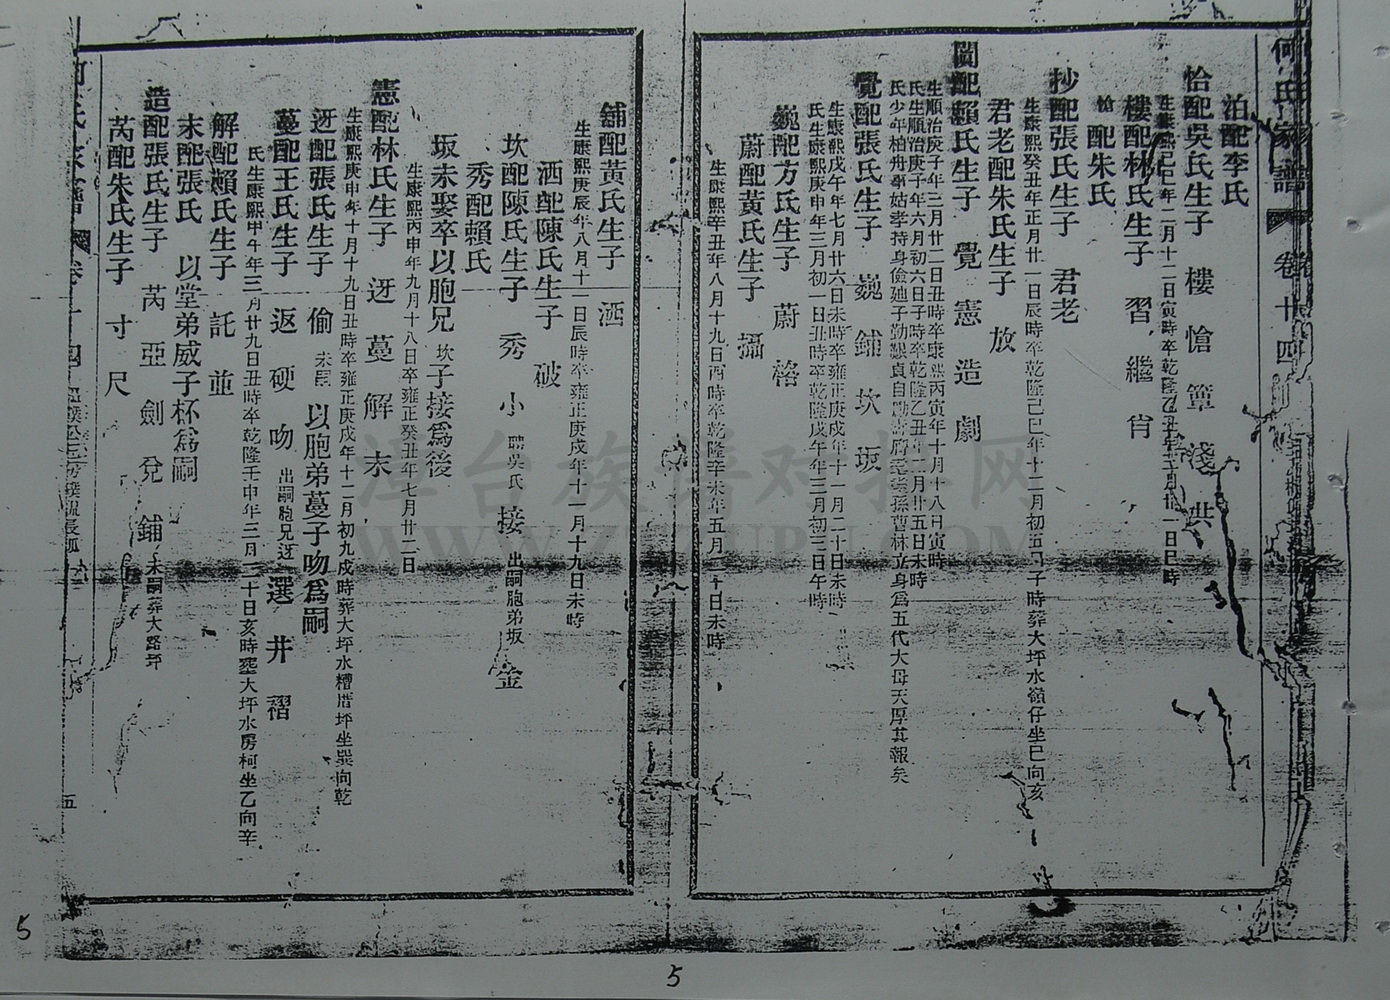 何氏家譜 卷十四
泊配李氏
恰配吳氏生子 樓 愴 簟 淺 洪
生康熙己巳年二月十二日寅時卒乾隆乙丑年三月廿一日巳時
樓配林氏生子 習 繼 肯
愴配朱氏
抄配張氏生子 君老
生康熙癸丑年正月廿一日辰時卒乾隆己巳年十二月初五日子時葬大坪水嶺仔坐巳向亥
君老配朱氏生子 放
闖配賴氏生子 覺 憲 造 劇
生順治庚子年三月廿二日丑時卒康熙丙寅年十月十八日寅時
氏生順治庚子年六月初六日子時卒乾隆乙丑年二月廿五日未時
氏少年柏舟事姑孝持身儉 子勤艱貞自勵 孫曹林立身為五代大母天厚其報矣
覺配張氏生子 巍 鋪 坎 坂
生康熙戊午年七月廿六日未時卒雍正庚戌年十一月二十日未時
氏生康熙庚申年三月初一日丑時卒乾隆戊午年三月初三日午時
巍配方氏生子 蔚 格
蔚配黃氏生子 攝
生康熙辛丑年八月十九日酉時卒乾隆辛未年五月二十日未時
鋪配黃氏生子 洒
生康熙庚辰年八月十一日辰時卒雍正庚戌年十一月十九日未時
洒配陳氏生子 破
坎配陳氏生子 秀 小 聘吳氏 接 出嗣胞弟坂 金
秀配賴氏
坂未娶卒以胞兄坎子接為後
生康熙丙申年九月十八日卒雍正癸丑年七月廿二日
憲配林氏生子 迓 蔓 解 末
生康熙庚申年十月十九日丑時卒雍正庚戌年十二月初九戌時葬大坪水糟厝坪坐巽向乾
迓配張氏生子 偷 未嗣 以胞弟蔓子吻為嗣
蔓配王氏生子 返 硬 吻 出嗣胞兄迓 選 井 褶
氏生康熙甲午年三月廿九日丑時卒乾隆壬申年三月二十日亥時塟大坪水房柯坐乙向辛
解配賴氏生子 託 並
末配張氏 以堂弟威子杯為嗣
造配張氏生子 芮 亞 劍 兌 鋪 未嗣葬大路坪
芮配朱氏生子 寸 尺
五
漳台族譜对接网
5
5